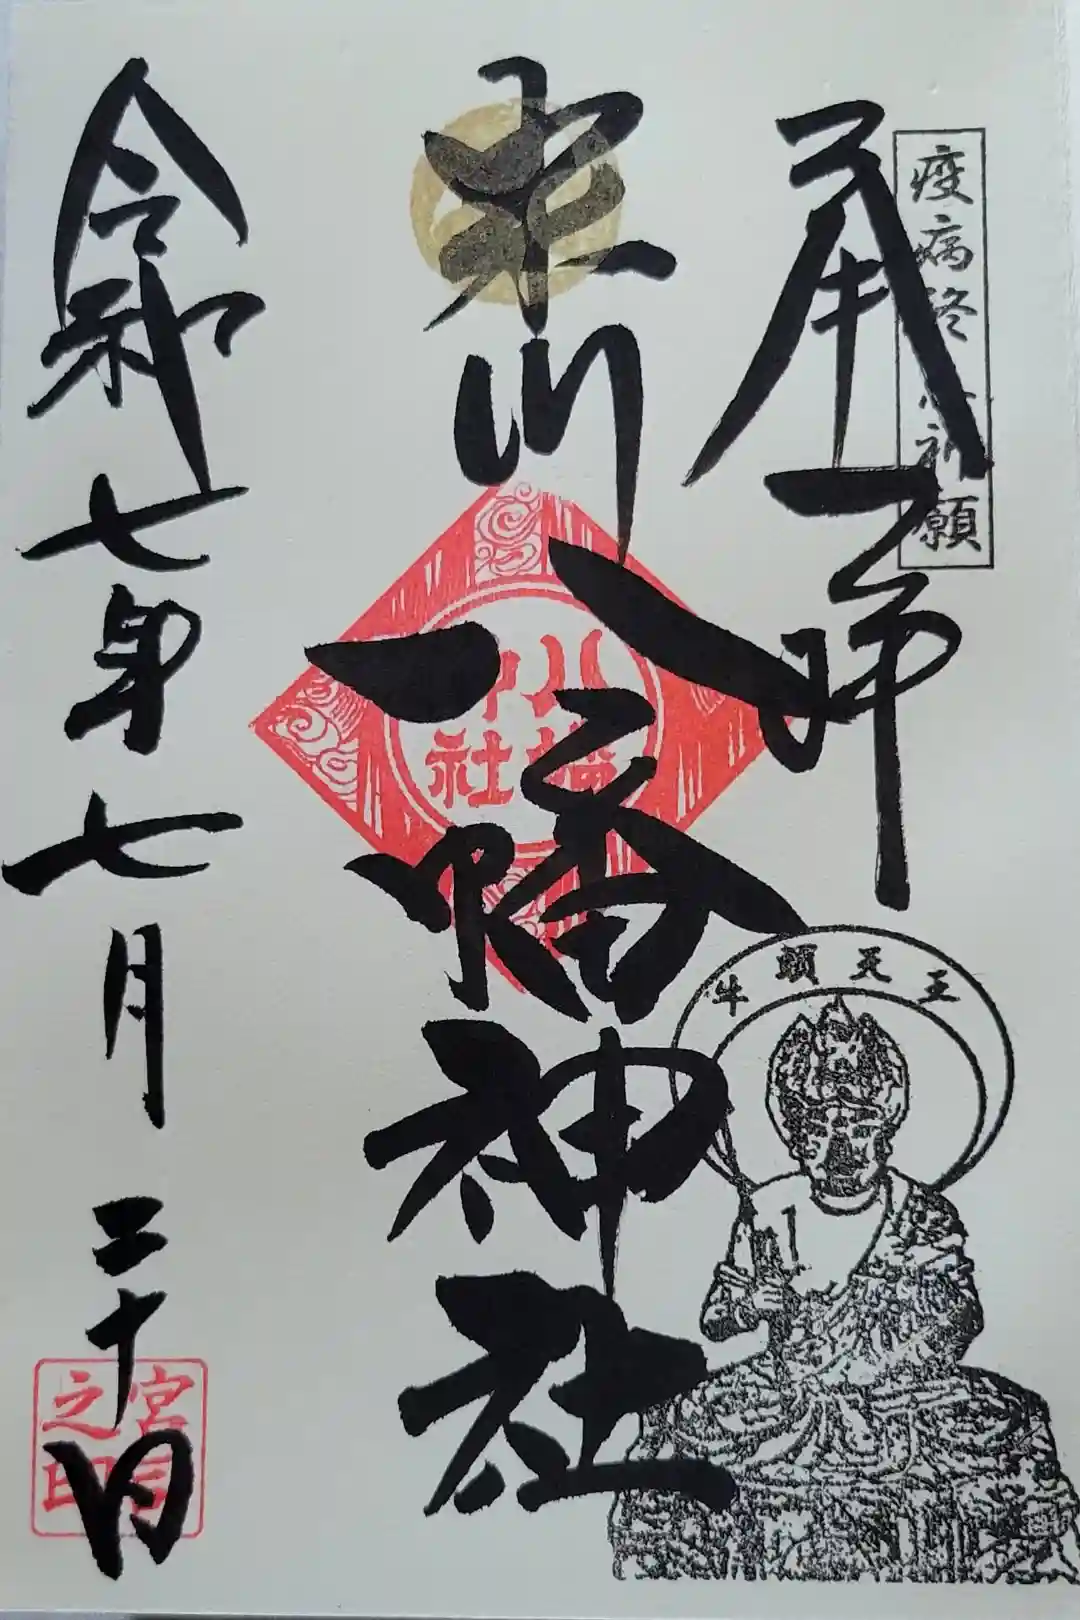 疫病終息祈願
奉拝
川八幡神社
八幡
神社
牛頭天王
令和七年七月二十日
宮司
之印